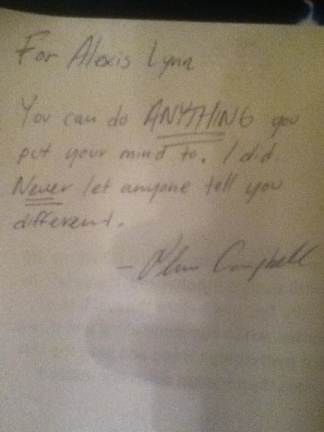 For Alexis Lynn
You can do ANYTHING you
put your mind to. I did.
Never let anyone tell you
different.
- Campbell